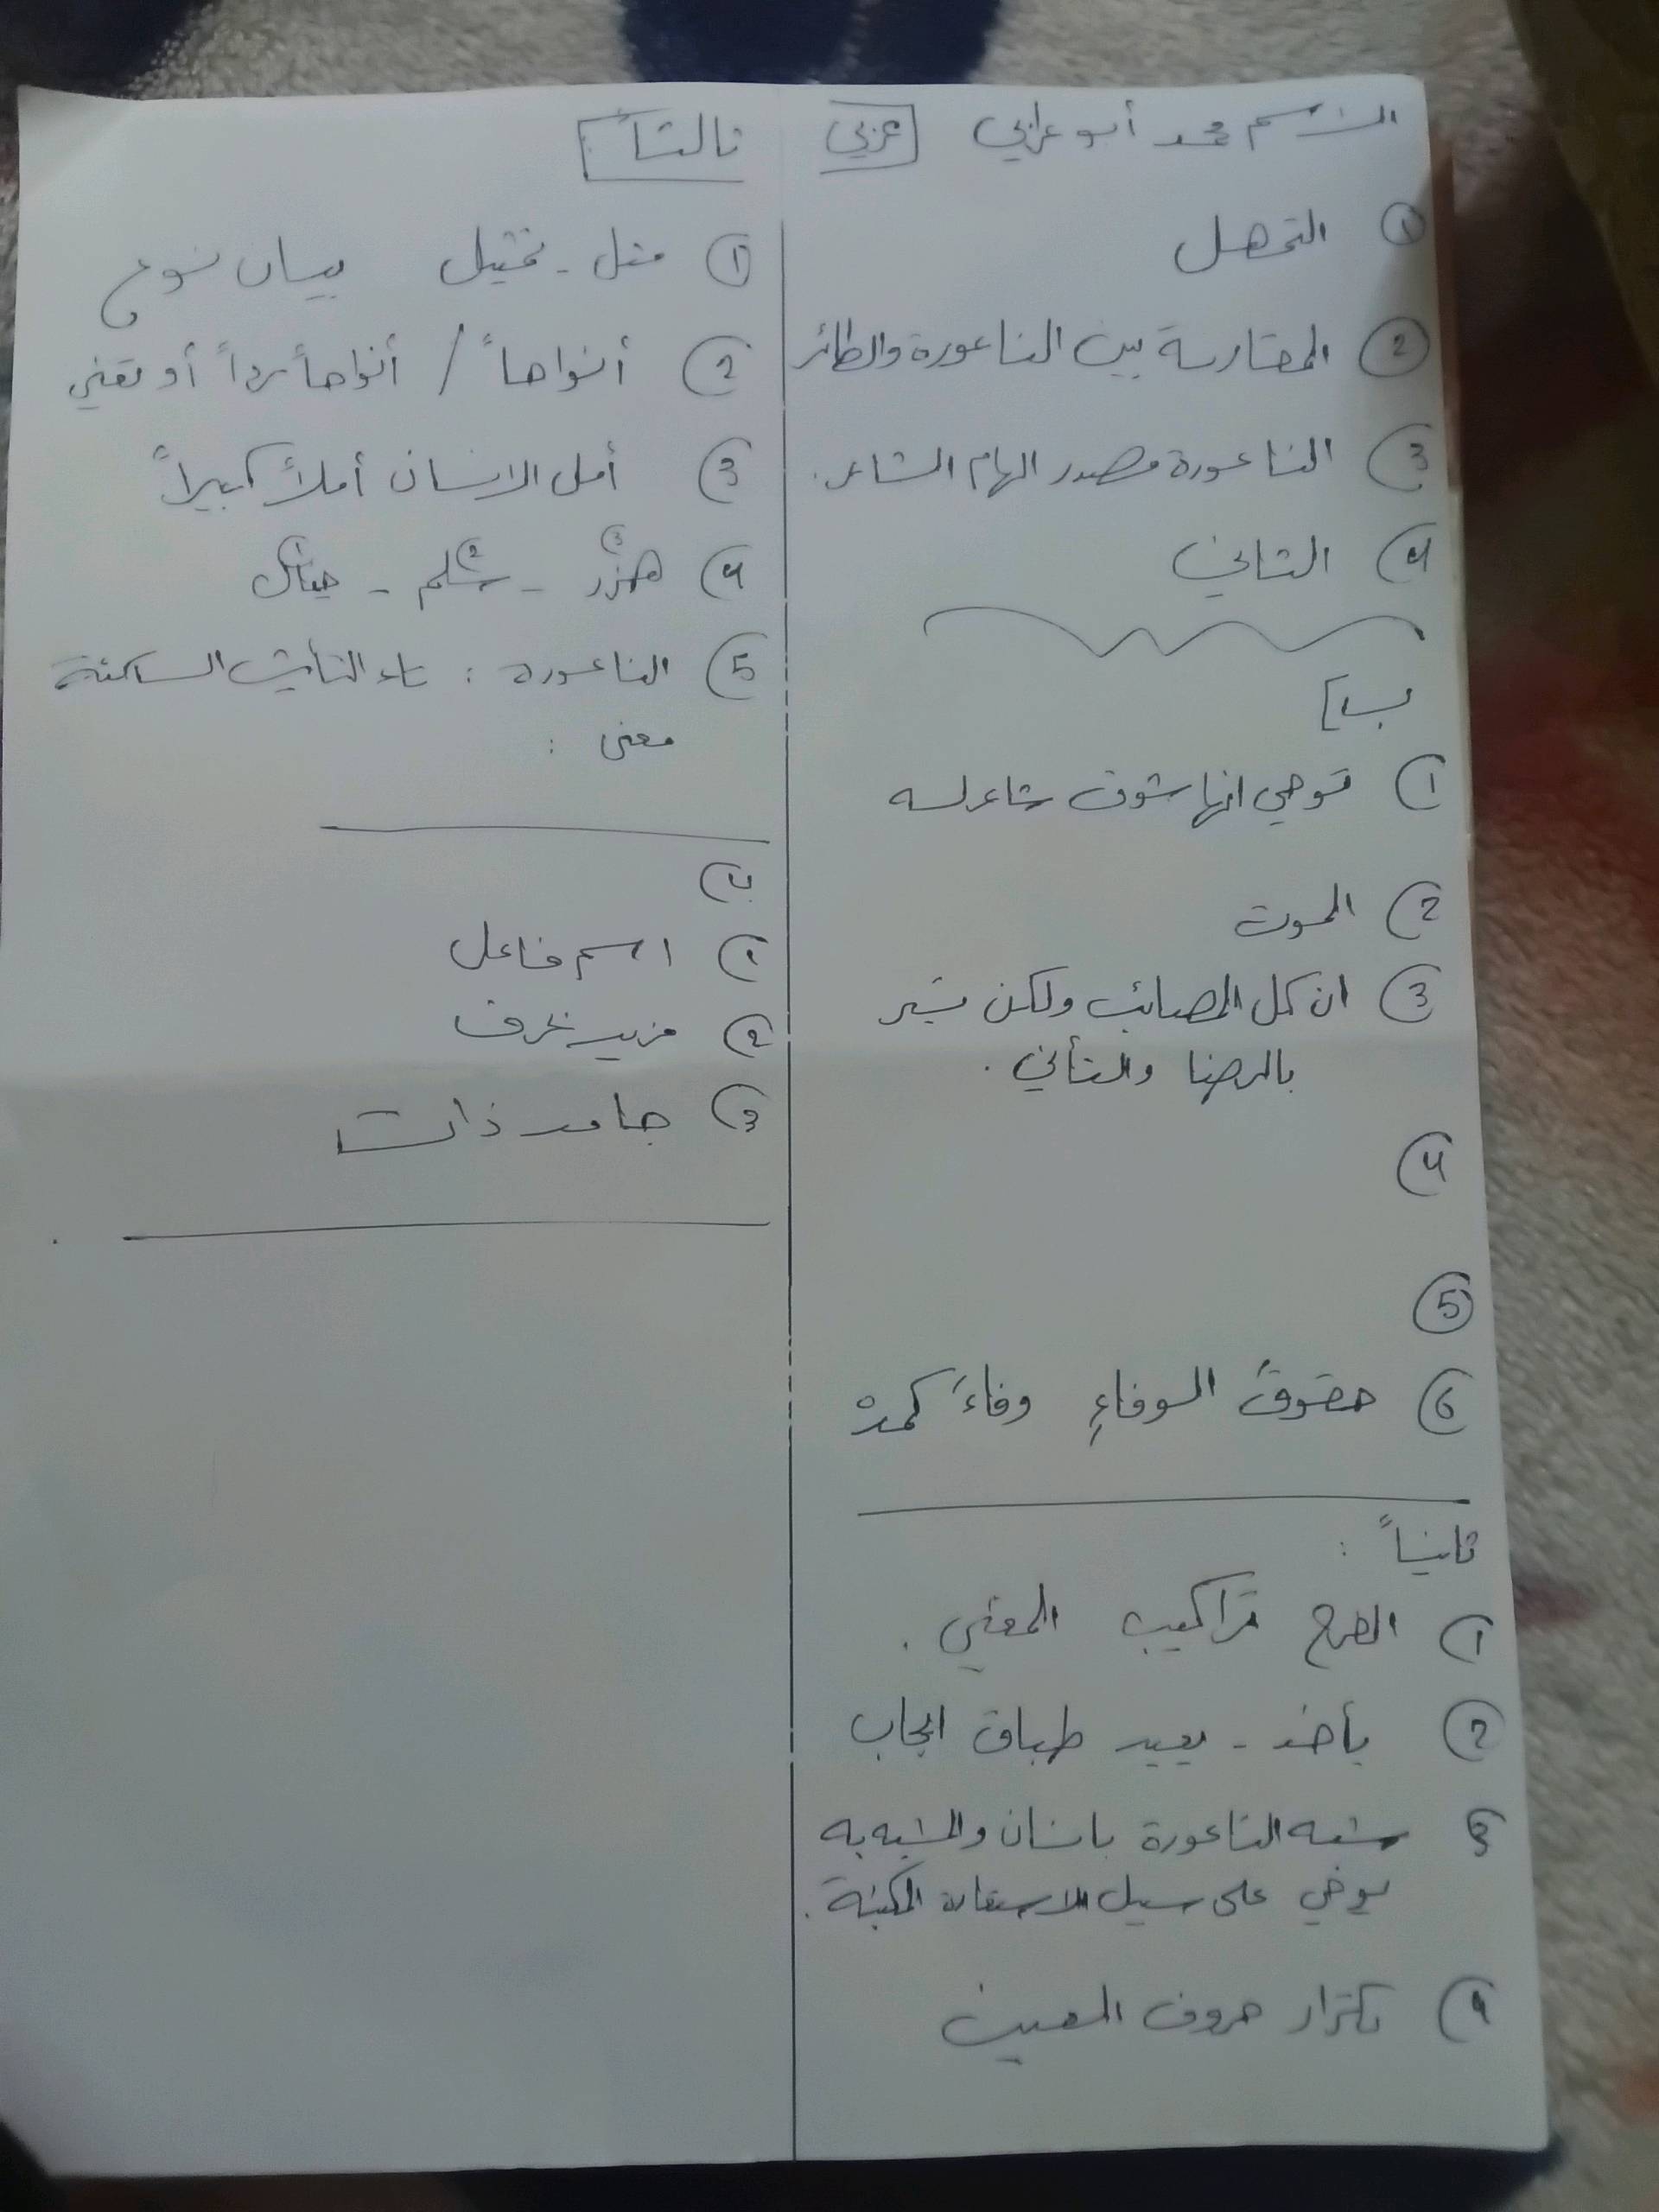 الاسم محمد أبو عرابي عربي
① التمهل
② المقارنة بين الناعورة والطائر
③ الناعورة مصدر الهام الشاعر.
④ التاني
ب]
① توحي انها شوق شاعر له
② الموت
③ ان كل المصائب ولكن تسير
بالرضا والتأني.
④
⑤
⑥ حقوق الوفاءِ وفاءَ
ثانياً:
① تراكيب المعنى.
② يأخذ - يعيد طباق ايجاب
3 شبه الناعورة بانسان والمشبه به
على سبيل الاستعارة المكنية.
④ تكرار حروف
ثالثاً:
① مثل - تمثيل بيان نوع
② أنواحاً / أنواحاً نرداً أو تغني
③ أمل الانسان أملاً كبيراً
④
⑤ الناعورة : تاء التأنيث الساكنة
معنى :
ب
① اسم فاعل
② مزيد بحرف
③ جامد ذات